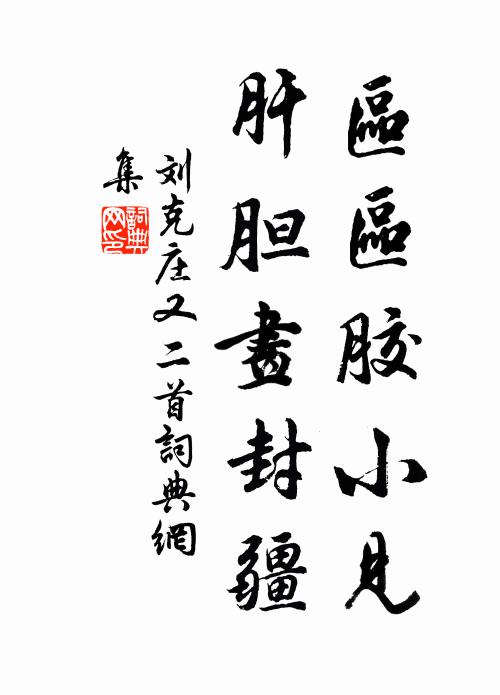 區區胶小見
肝胆畫封疆
刘克庄又二首詞典網
集
詞典
网印